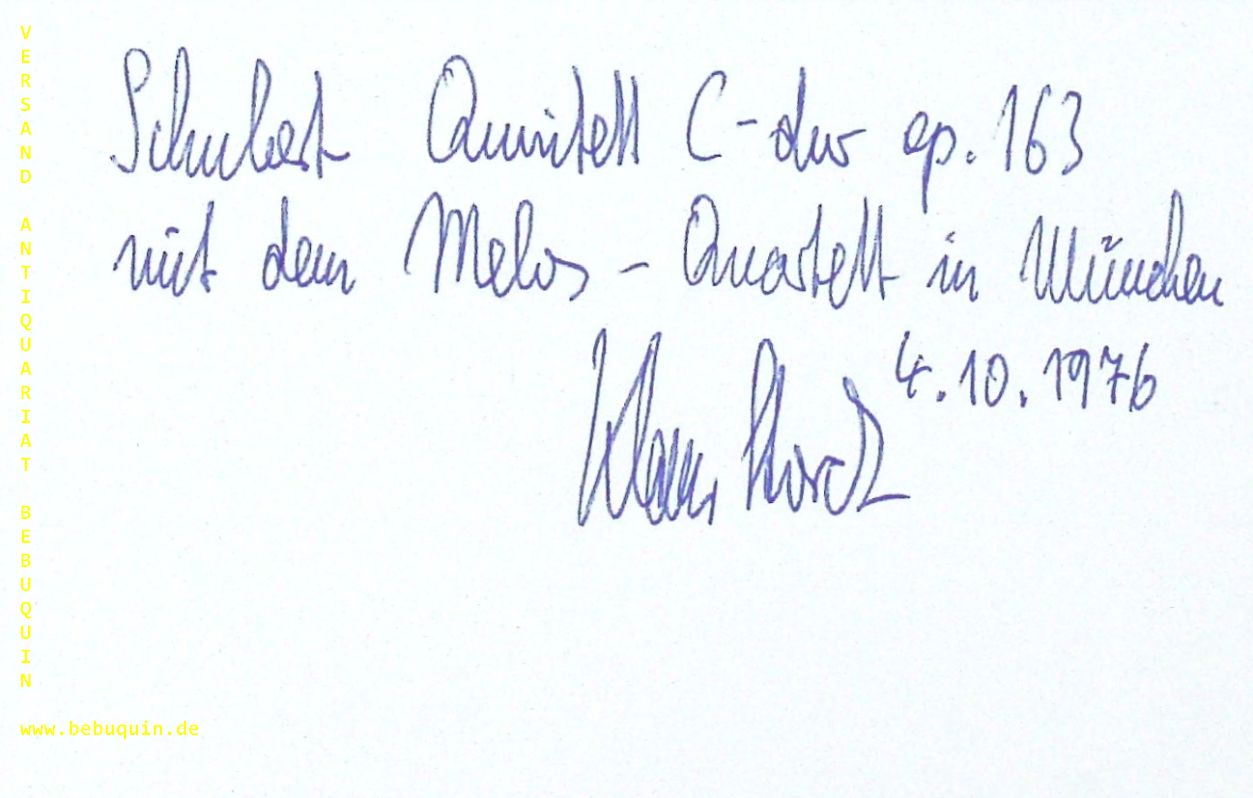 Schubert Quintett C-dur op. 163
mit dem Melos - Quartett in München
4.10.1976
Klaus Storck
VERSAND ANTIQUARIAT BEBUQUIN
www.bebuquin.de